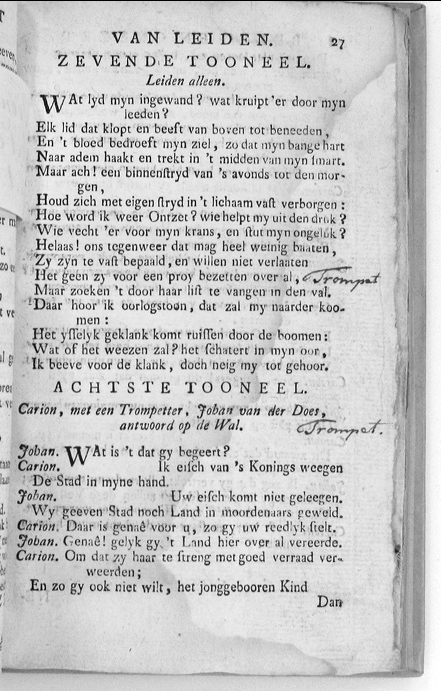 VAN LEIDEN. 27
ZEVENDE TOONEEL.
Leiden alleen.
WAt lyd myn ingewand? wat kruipt 'er door myn
leeden?
Elk lid dat klopt en beeft van boven tot beneeden,
En 't bloed bedroeft myn ziel, zo dat myn bange hart
Naar adem haakt en trekt in 't midden van myn smart.
Maar ach! een binnenstryd van 's avonds tot den mor-
gen,
Houd zich met eigen stryd in 't lichaam vast verborgen:
Hoe word ik weer Ontzet? wie helpt my uit den druk?
Wie vecht 'er voor myn krans, en stut myn ongeluk?
Helaas! ons tegenweer dat mag heel weinig baaten,
Zy zyn te vast bepaald, en willen niet verlaaten
Het geen zy voor een proy bezetten over al, Trompet
Maar zoeken 't door haar list te vangen in den val.
Daar hoor ik oorlogstoon, dat zal my naarder koo-
men:
Het ysselyk geklank komt ruissen door de boomen:
Wat of het weezen zal? het schatert in myn oor,
Ik beeve voor de klank, doch neig my tot gehoor.
ACHTSTE TOONEEL.
Carion, met een Trompetter, Joban van der Does,
antwoord op de Wal. Trompet.
Joban. WAt is 't dat gy begeert?
Carion. Ik eisch van 's Konings weegen
De Stad in myne hand.
Joban. Uw eisch komt niet geleegen.
Wy geeven Stad noch Land in moordenaars geweld.
Carion. Daar is genaê voor u, zo gy uw reedlyk stelt.
Joban. Genaê! gelyk gy 't Land hier over al vereerde.
Carion. Om dat zy haar te streng met goed verraad ver-
weerden;
En zo gy ook niet wilt, het jonggebooren Kind
Dan